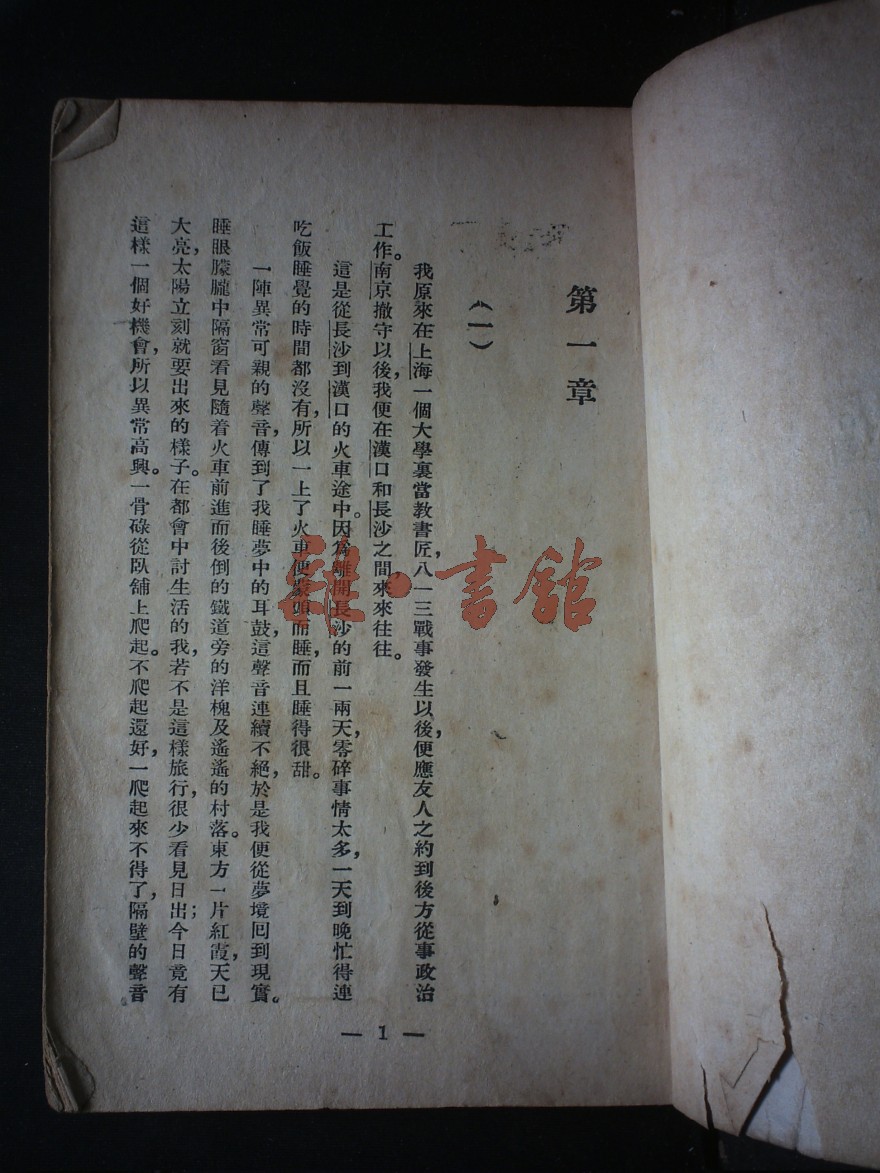 第一章
（一）
我原來在上海一個大學裏當教書匠，八一三戰事發生以後，便應友人之約到後方從事政治
工作。南京撤守以後，我便在漢口和長沙之間，來來往往。
這是從長沙到漢口的火車途中。因爲離開長沙的前一兩天，零碎事情太多，一天到晚忙得連
吃飯睡覺的時間都沒有，所以一上了火車便蒙頭而睡，而且睡得很甜。
一陣異常可親的聲音，傳到了我睡夢中的耳鼓，這聲音連續不絕，於是我便從夢境回到現實。
睡眼朦朧中隔窗看見隨着火車前進而後倒的鐵道旁的洋槐及遙遙的村落。東方一片紅霞，天已
大亮，太陽立刻就要出來的樣子。在都會中討生活的我，若不是這樣旅行，很少看見日出；今日竟有
這樣一個好機會，所以異常高興。一骨碌從臥舖上爬起。不爬起還好，一爬起來不得了，隔壁的聲音
— 1 —
雜·書館